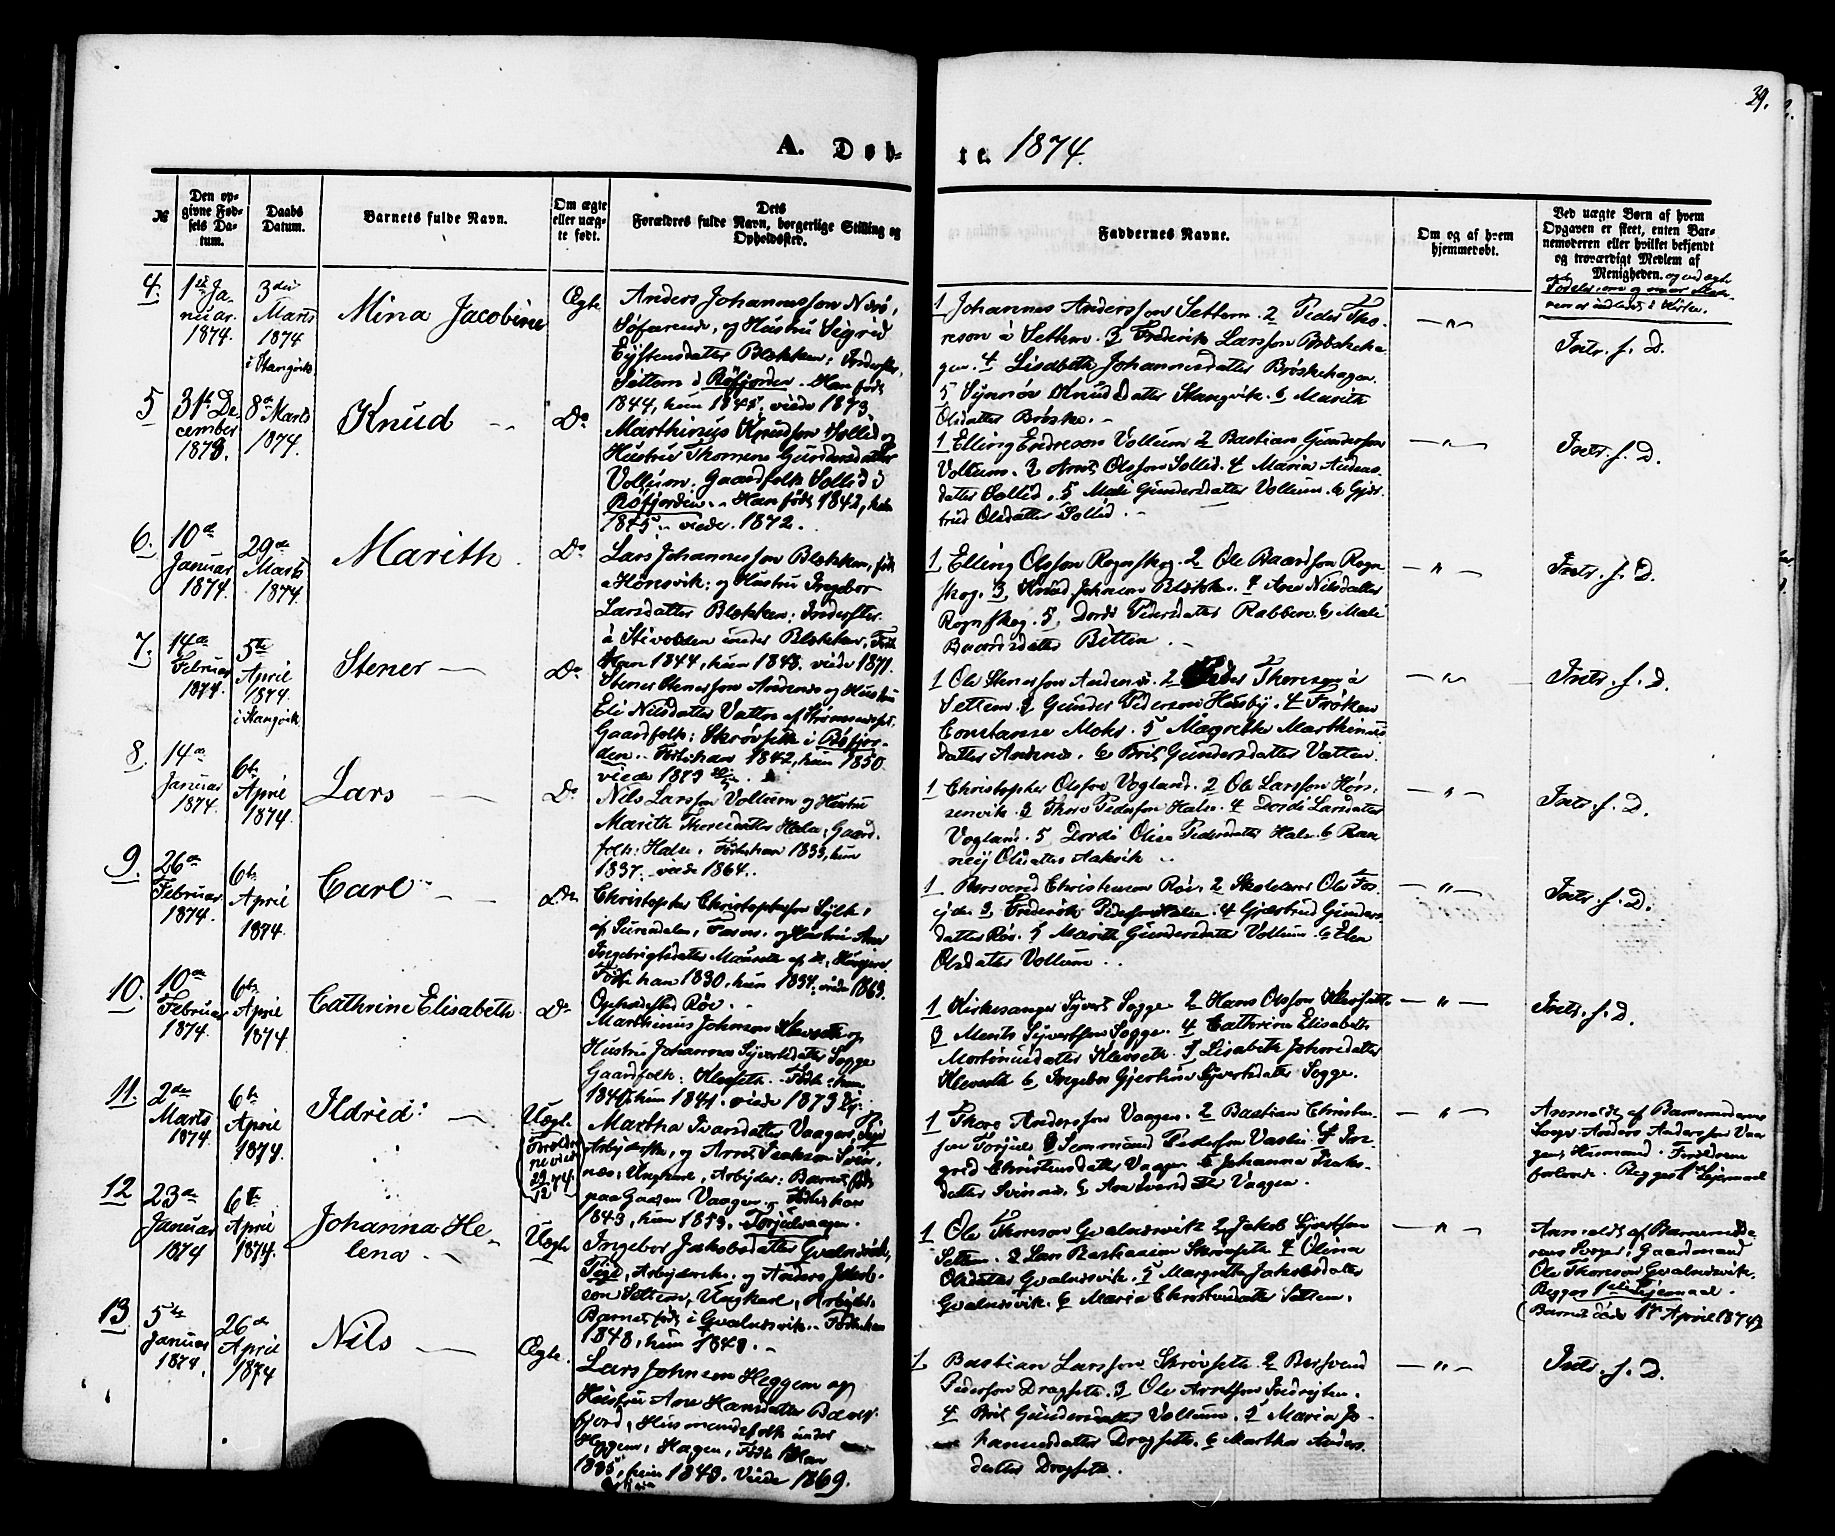 39.
A. Døb-
te. 1874.
№
Den op-
givne Fød-
sels Da-
tum.
Daabs
Datum.
Barnets fulde Navn.
Om ægte
eller uæg-
te født.
Dets
Forældres fulde Navn, borgerlige Stilling og
Opholdssted.
Faddernes Navne.
Om og af hvem
hjemmedøbt.
Ved uægte Børn af hvem
Opgaven er skeet, enten Bar-
nemoderen eller hvilket bekjendt
og troværdigt Medlem af
Menigheden.
4.
1ste Ja-
nuar
1874.
3die
Marts
1874
i Stangvik
Mina Jacobine
Ægte
Anders Johannesson
Søfarende, og Hustru Sigrid
Eystensdatter Blekken: Inderst
Settem i Røfjorden. Han født
1844, hun 1845, viede 1873.
1 Johannes Andersson Settem. 2 Peder Tho-
reson à Settem. 3 Frederik Larsson Brøskeha-
gen. 4 Lisabeth Johannesdatter Brøskehagen.
5 Synnøv Knudsdatter Stangvik. 6 Marith
Olsdatter Brøske. -
— " —
Intr. f. D.
5
31te De-
cember
1873.
8de Marts
1874.
Knud
Do
Marthinus Knudson Sollid og
Hustru Thomine Gundersdatter
Vollum. Gaardfolk Sollid i
Røfjorden. Han født 1842, hun
1845. - viede 1872.
1 Elling Endreson Vollum 2 Bastian Gunderson
Vollum. 3 Arnt Olsson Sollid. 4 Maria Anders
datter Sollid. 5 Mali Gundersdatter Vollum. 6 Gjer-
trud Olsdatter Sollid. -
— " —
Intr. f. D.
6.
10de
Januar
1874.
29de
Marts
1874.
Marith
Do
Lars Johannesson Blekken, født
Hønsvik: og Hustru Ingebor
Larsdatter Blekken: Inderster
à Stivolden under Blekken, Født
Han 1844, hun 1848. viede 1871.
1 Elling Olsson Rognskog. 2 Ole Baardson Rogn
skog. 3 Knud Johnson Blekken. 4 Ane Nilsdatter
Rognskog. 5 Dordi Pedersdatter Rabben. 6 Mali
Baardsdatter Bitten
— " —
Intr. f. D.
7.
14de
Februar
1874.
5te
April
1874.
i Stangvik
Stener
Do
Stener Stenersson Andenes og Hustru
Eli Nilsdatter Vatten af
Gaardfolk: Skrøvseth i Røfjor-
den. Født: han 1842, hun 1850.
viede 1873
1 Ole Stenersson Andenes. 2 Peder Thoreson à
Settem. 3 Gunder Pederson Husby. 4 Frøken
Constanse Moks. 5 Magrethe Marthinus
datter Andenes. 6 Brit Gundersdatter Vatten.
— " —
Intr. f. D.
8.
14de
Januar
1874.
6te
April
1874.
Lars
Do
Nils Larsson Vollum og Hustru
Marith Thoresdatter Halse, Gaard-
folk: Halse. Født: han 1833, hun
1837. - viede 1864.
1 Christopher Olsson Vogland. 2 Ole Larsson Høn-
senvik. 3 Thore Pederson Halse. 4 Dordi Larsdatter
Vogland. 5 Dordi Olina Pedersdatter Halse. 6 Ran-
neij Olsdatter Aakvik
— " —
Intr. f. D.
9.
26de
Februar
1874.
6te
April
1874.
Carl
Do
Christopher Christopherson Sylte,
af Surendalen, og Hustru Ane
Ingebrigtsdatter
Født: han 1830, hun 1834, viede 1863.
Opholdssted Røe.
1 Bersvend Christenson Røe. 2 Skolelærer Ole Fos-
eide. 3 Frederik Pederson Halse. 4 Gjertrud Gunders
datter Røe. 5 Marith Gundersdatter Vollum. 6 Elen
Olsdatter Vollum
— " —
Intr. f. D.
10.
10de
Februar
1874.
6te
April
1874.
Cathrine Elisabeth
Do
Marthinus Johnson Klevseth og
Hustru Johanna Syvertsdatter Sogge
Gaardfolk: Klevseth. Født: han
1845, hun 1841. viede 1873
1 Kirkesanger Syvert Sogge. 2 Hans Olsson Klevseth
3 Merits Syvertson Sogge. 4 Cathrine Elisabeth
Mortinusdatter Klevseth. 5 Lisabeth Johnsdatter
Klevseth 6 Ingebor Gjertine Syvertsdatter Sogge.
— " —
Intr. f. D.
11.
2den
Marts
1874.
6te
April
1874.
Ildrid:
Uægte
(Forældre-
ne viede
29/12 74.)
Martha Ivarsdatter Vaagen, Pige
Arbejderske, og Arnt Iversson Svin-
nes, Ungkarl, Arbejder: Barnet født
paa Gaasen Vaagen. Født: han
1849, hun 1853. Torjulvaagen.
1 Thore Andersson Vaagen. 2 Bastian Christen-
son Torjul. 3 Semmund Pederson Vasli. 4 In-
gred Christensdatter Vaagen 5 Johanna Iver-
datter Svinnes. 6 Ane Iversdatter Vaagen.
— " —
Anmeldt af Barnemoderens
Svoger Anders Andersson Vaa
gen, Husmand. Forældrene
forlovede. Begges 1te Lejermaal
12
23de
Januar
1874
6te
April
1874.
Johanna He-
lena
Uægte
Ingebor Jakobsdatter Gvalnesvik,
Pige, Arbejderske: og Anders Jakob-
son Settem, Ungkarl, Arbejder.
Barnet født i Gvalnesvik. Født: han
1848, hun 1849. -
1 Ole Thoreson Gvalnesvik 2 Jakob Syvertson
Settem. 3 Lars Bastianson Skrøvseth 4 Olina
Olsdatter Gvalnesvik. 5 Margretha Jakobsdatter
Gvalnesvik. 6 Maria Christensdatter Settem.
— " —
Anmeldt af Barnemode-
rens Svoger, Gaardmand
Ole Thoreson Gvalnesvik.
Begges 1ste Lejermaal.
(Barnet død 17 April 1874)
13
5te
Januar
1874.
26de
April
1874
Nils
Ægte.
Lars Johnson Heggem og
Hustru Ane Hansdatter Bævel-
fjord, Husmandsfolk under
Heggem, Hagen, Født Han
1835, hun 1843. Viede 1869.
1 Bastian Larsson Skrøvseth. 2 Bersvend
Pederson Dragseth. 3 Ole Arntson
4 Brit Gundersdatter Vollum. 5 Maria Jo-
hannesdatter Dragseth. 6 Martha Anders
datter Dragseth.
— " —
Intr. f. D.